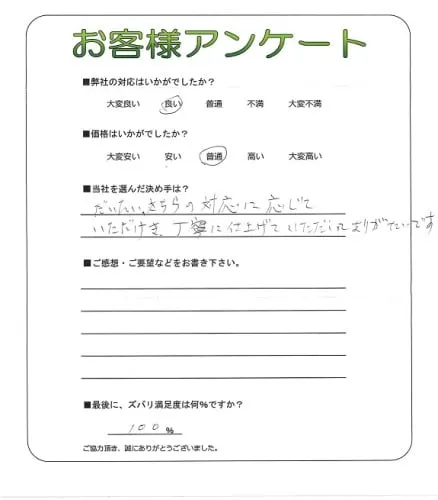 お客様アンケート
■弊社の対応はいかがでしたか?
大変良い 良い 普通 不満 大変不満
■価格はいかがでしたか?
大変安い 安い 普通 高い 大変高い
■当社を選んだ決め手は?
だいたい、こちらの対応に応じて
いただけき、丁寧に仕上げていただけれありがたいです
■ご感想・ご要望などをお書き下さい。
■最後に、ズバリ満足度は何%ですか?
100%
ご協力頂き、誠にありがとうございました。